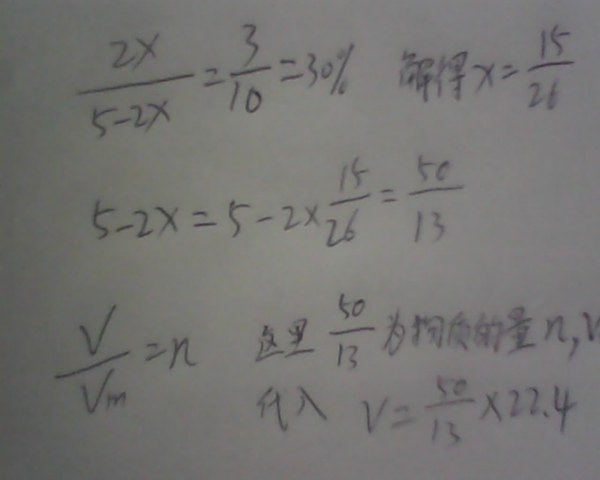 2x/(5-2x) = 3/10 = 30% 解得 x = 15/26
5-2x = 5-2×15/26 = 50/13
V/Vm = n 这里 50/13 为物质的量 n, V
代入 V = 50/13 × 22.4